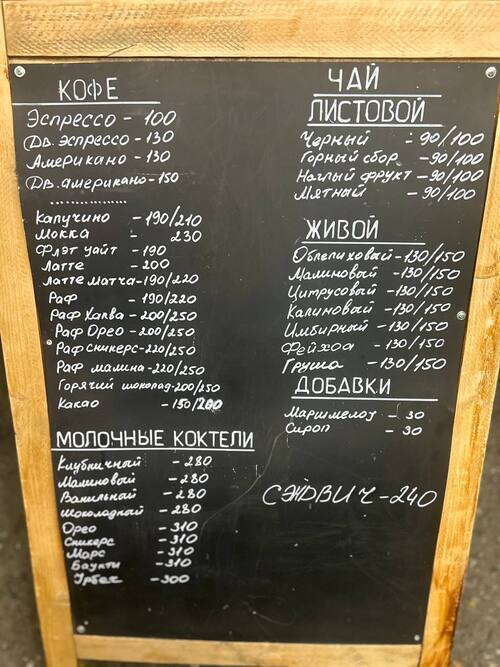 КОФЕ
Эспрессо - 100
Дв. эспрессо - 130
Американо - 130
Дв. американо - 150
Капучино - 190/210
Мокка - 230
Флэт уайт - 190
Латте - 200
Латте Матча - 190/220
Раф - 190/220
Раф Халва - 200/250
Раф Орео - 200/250
Раф Сникерс - 220/250
Раф малина - 220/250
Горячий шоколад - 200/250
Какао - 150/200
МОЛОЧНЫЕ КОКТЕЛИ
Клубничный - 280
Малиновый - 280
Ванильный - 280
Шоколадный - 280
Орео - 310
Сникерс - 310
Марс - 310
Баунти - 310
Урбеч - 300
ЧАЙ
ЛИСТОВОЙ
Черный - 90/100
Горный сбор - 90/100
Наглый фрукт - 90/100
Мятный - 90/100
ЖИВОЙ
Облепиховый - 130/150
Малиновый - 130/150
Цитрусовый - 130/150
Калиновый - 130/150
Имбирный - 130/150
Фейхоа - 130/150
Груша - 130/150
ДОБАВКИ
Маршмелоу - 30
Сироп - 30
СЭНДВИЧ - 240